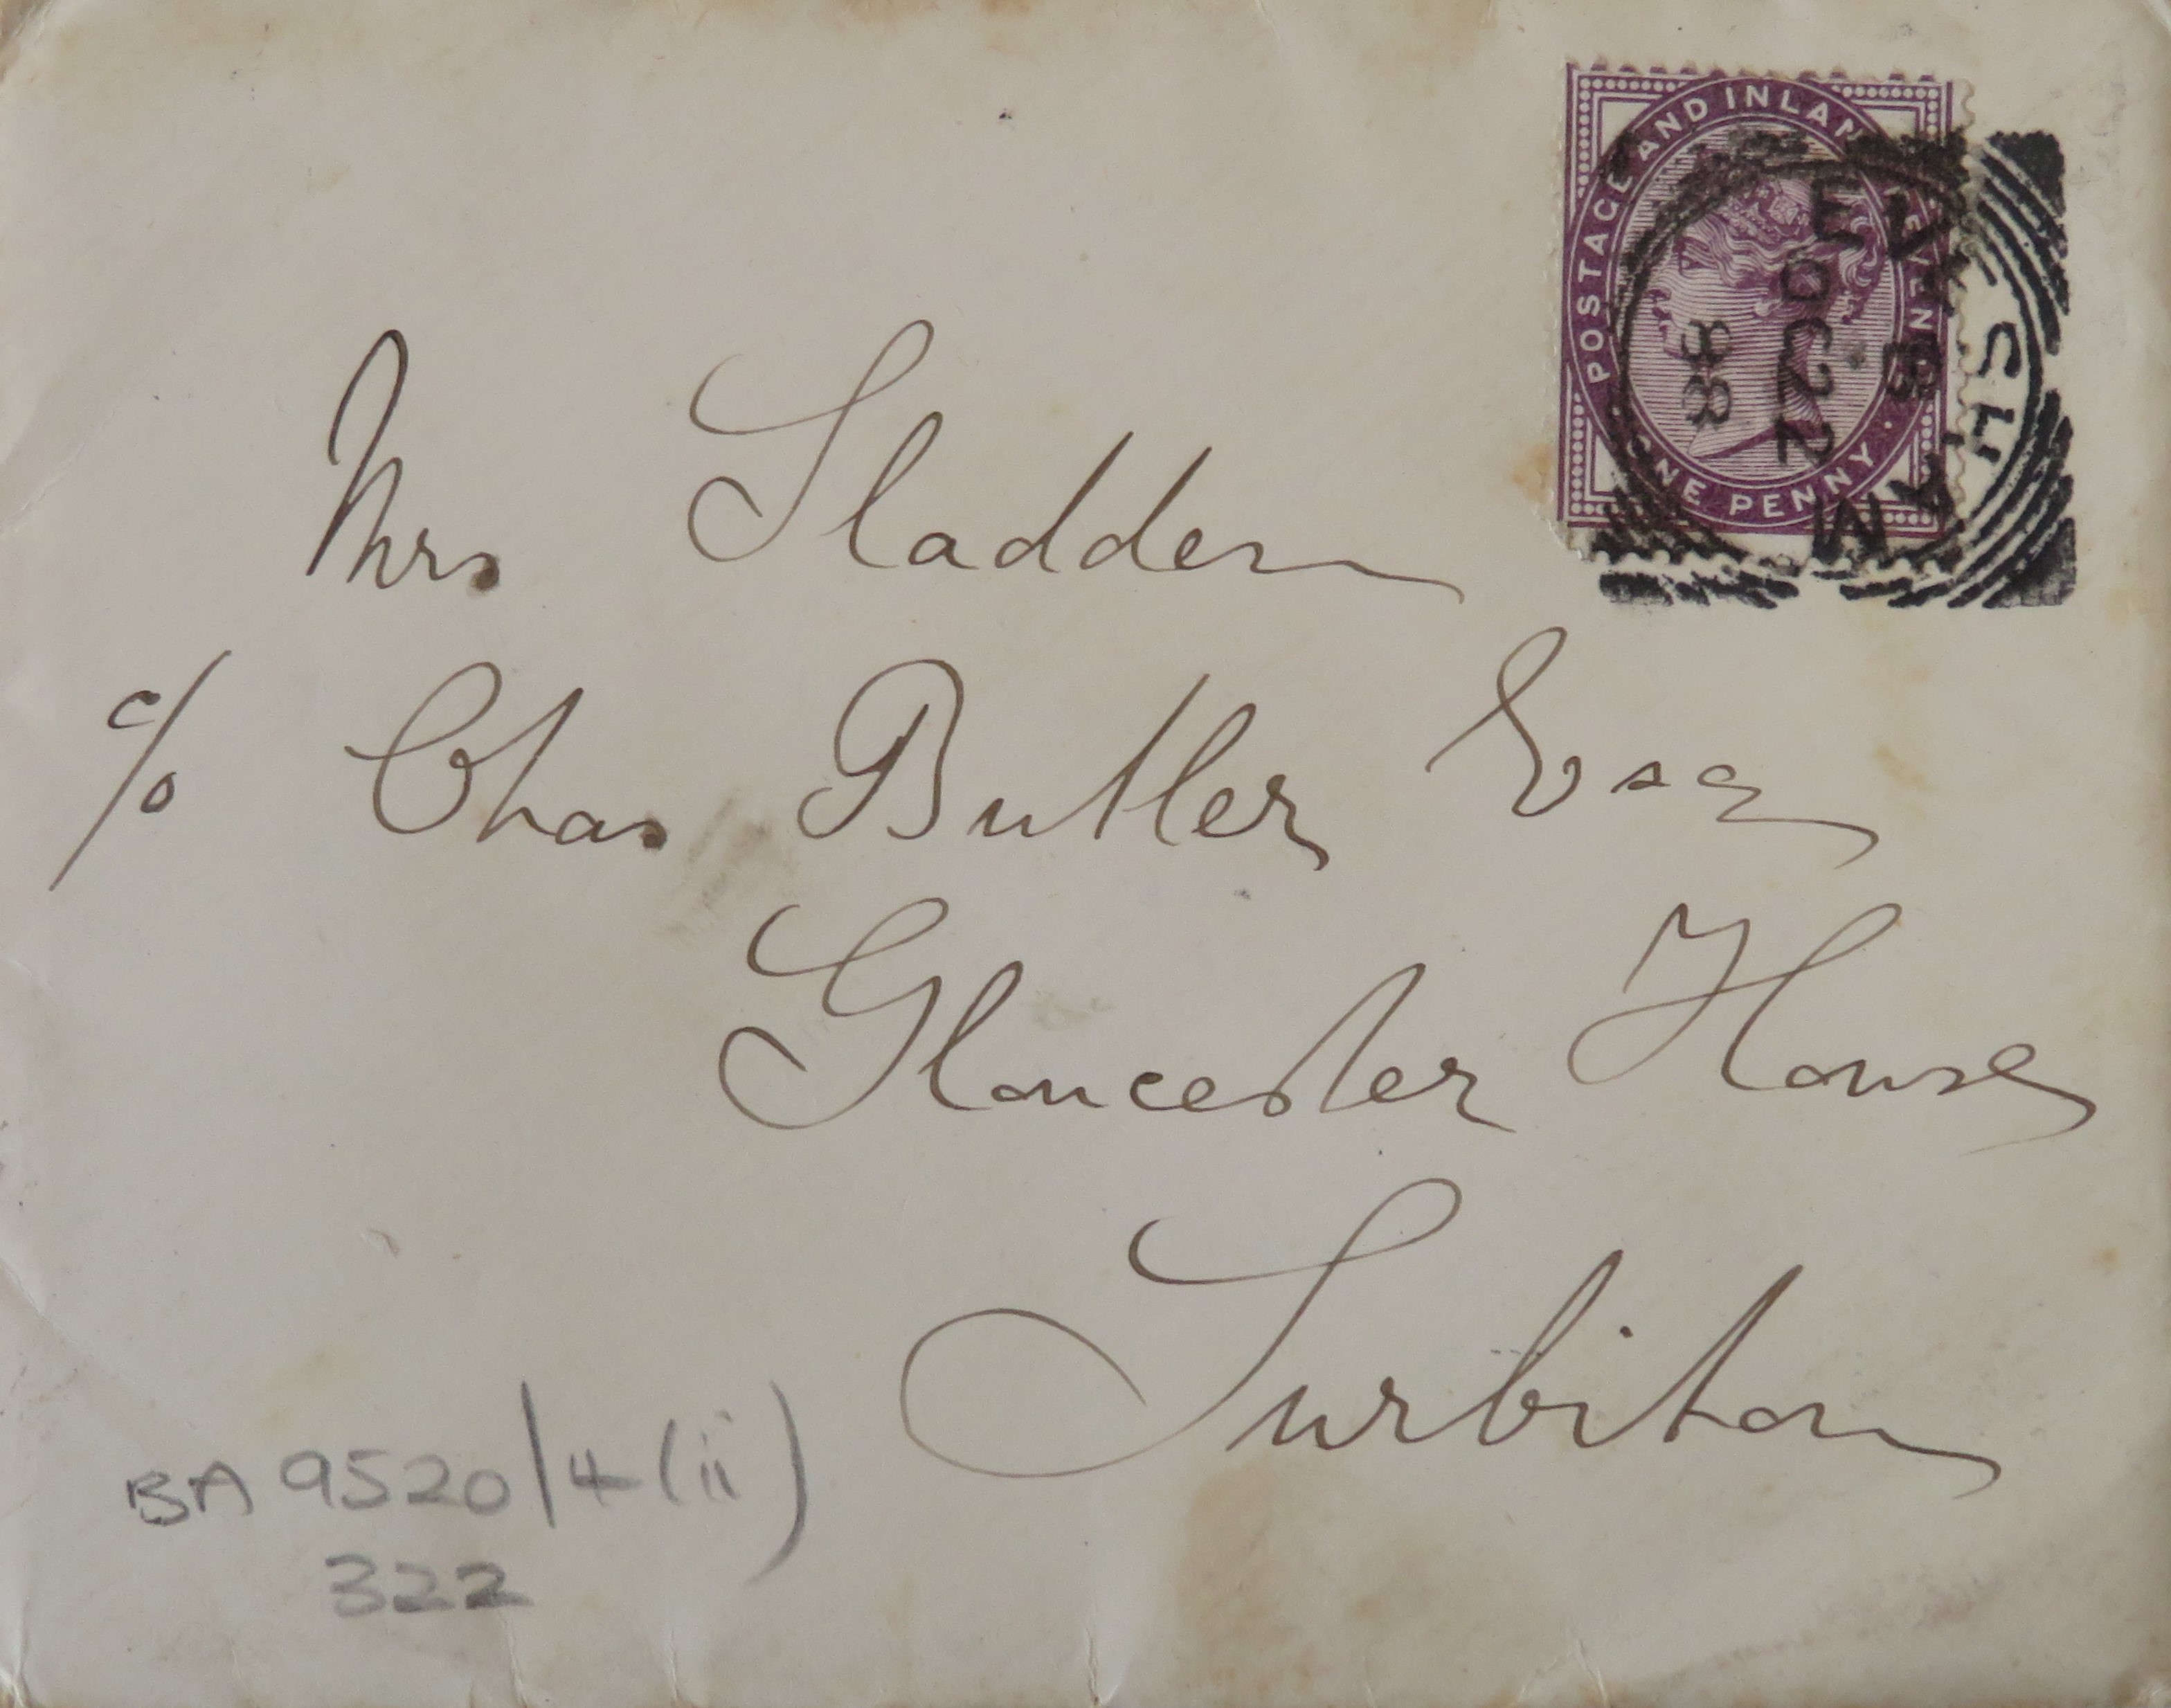 POSTAGE AND INLAND REVENUE
ONE PENNY
EVESHAM
B
OC 22
88
Mrs Sladden
c/o Chas Butler Esq
Gloucester House
Surbiton
BA 9520/4(ii)
322